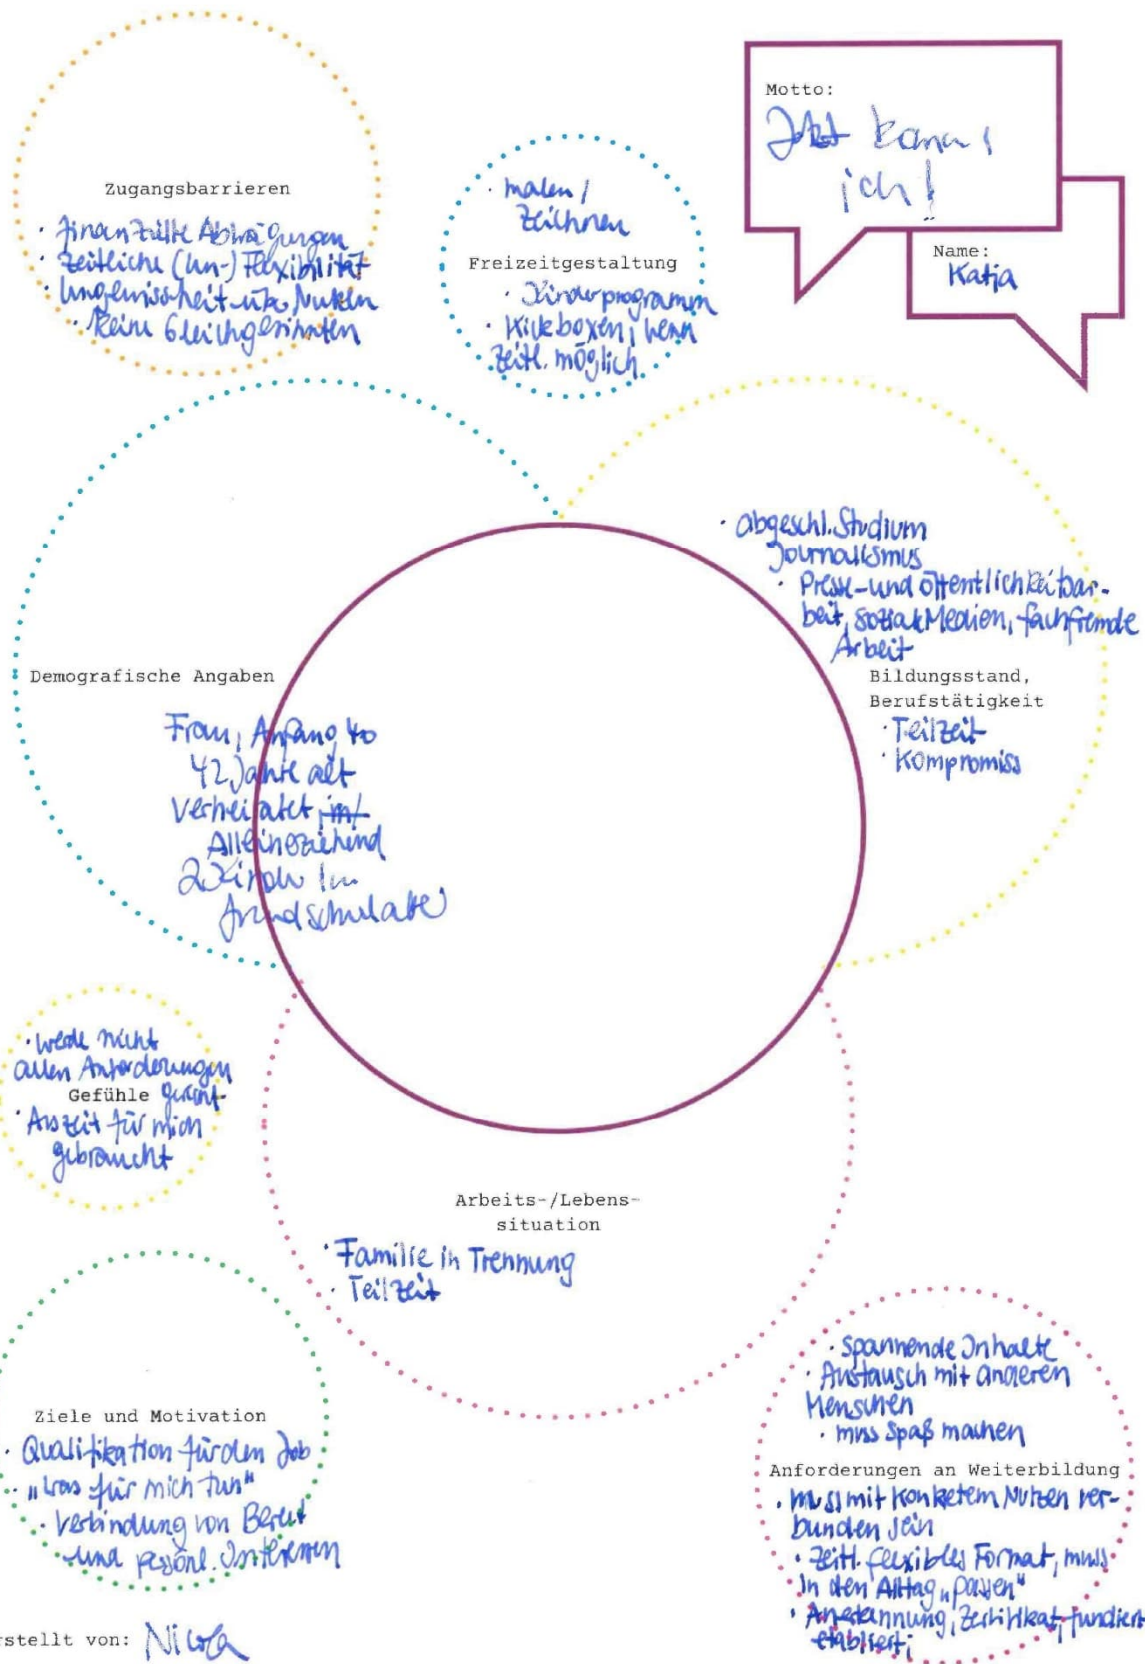 Motto:
Jetzt komm'
ich!
Name:
Katja
Zugangsbarrieren
· finanzielle Abwägungen
· zeitliche (Un-) Flexibilität
· Ungewissheit über Nutzen
· Keine Gleichgesinnten
· malen /
zeichnen
Freizeitgestaltung
· Kinderprogramm
· Kickboxen, wenn
zeitl. möglich
Demografische Angaben
Frau, Anfang 40
42 Jahre alt
verheiratet
Alleinerziehend
2 Kinder im
Grundschulalter
· abgeschl. Studium
Journalismus
· Presse- und Öffentlichkeitsar-
beit, soziale Medien, fachfremde
Arbeit
Bildungsstand,
Berufstätigkeit
· Teilzeit
· Kompromiss
· werde nicht
allen Anforderungen
Gefühle gerecht
· Auszeit für mich
gebraucht
Arbeits-/Lebens-
situation
· Familie in Trennung
· Teilzeit
Ziele und Motivation
· Qualifikation für den Job
· "was für mich tun"
· Verbindung von Beruf
und persönl. Interessen
· spannende Inhalte
· Austausch mit anderen
Menschen
· muss Spaß machen
Anforderungen an Weiterbildung
· muss mit konketem Nutzen ver-
bunden sein
· zeitl. flexibles Format, muss
in den Alltag "passen"
· Anerkennung, Zertifikat, fundiert
etabliert;
rstellt von: Nicola